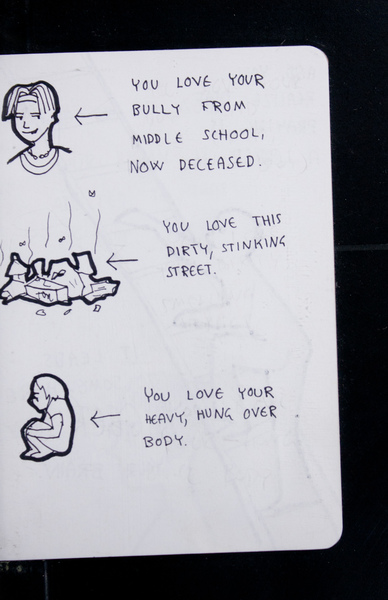 YOU LOVE YOUR
BULLY FROM
MIDDLE SCHOOL,
NOW DECEASED.
YOU LOVE THIS
DIRTY, STINKING
STREET.
YOU LOVE YOUR
HEAVY, HUNG OVER
BODY.